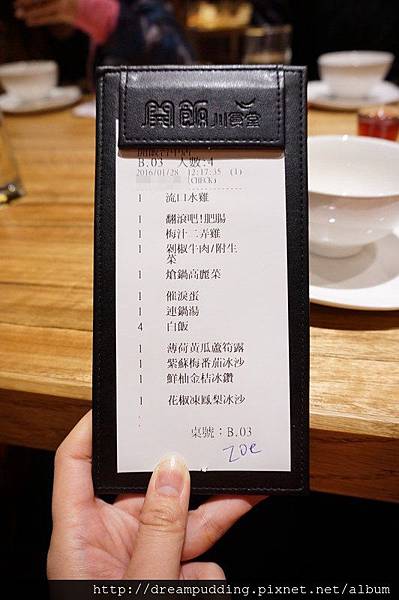 開飯川食堂
開飯台中店
B.03 人數:4
2016/01/28 12:17:35 (1)
(CHECK)
1 流口水雞
1 翻滾吧!肥腸
1 梅汁二弄雞
1 剁椒牛肉/附生
菜
1 熗鍋高麗菜
1 催淚蛋
1 連鍋湯
4 白飯
1 薄荷黃瓜蘆筍露
1 紫蘇梅番茄冰沙
1 鮮柚金桔冰鑽
1 花椒凍鳳梨冰沙
桌號:B.03
Zoe
http://dreampudding.pixnet.net/album